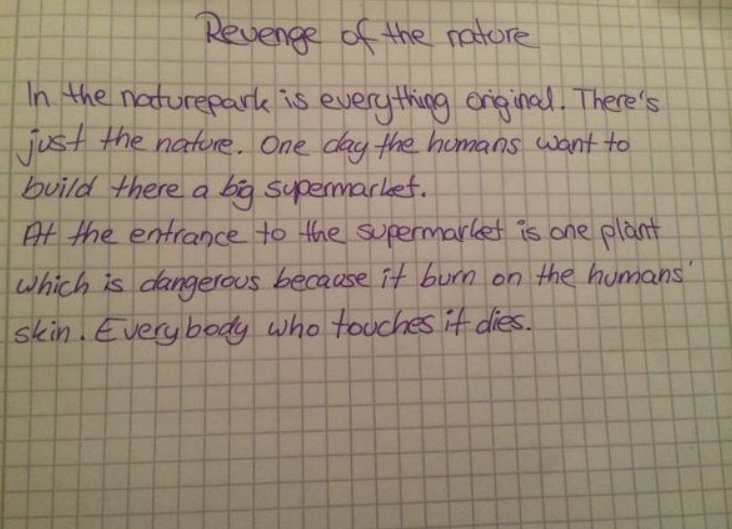 Revenge of the nature
In the naturepark is everything original. There's
just the nature. One day the humans want to
build there a big supermarket.
At the entrance to the supermarket is one plant
which is dangerous because it burn on the humans'
skin. Everybody who touches it dies.